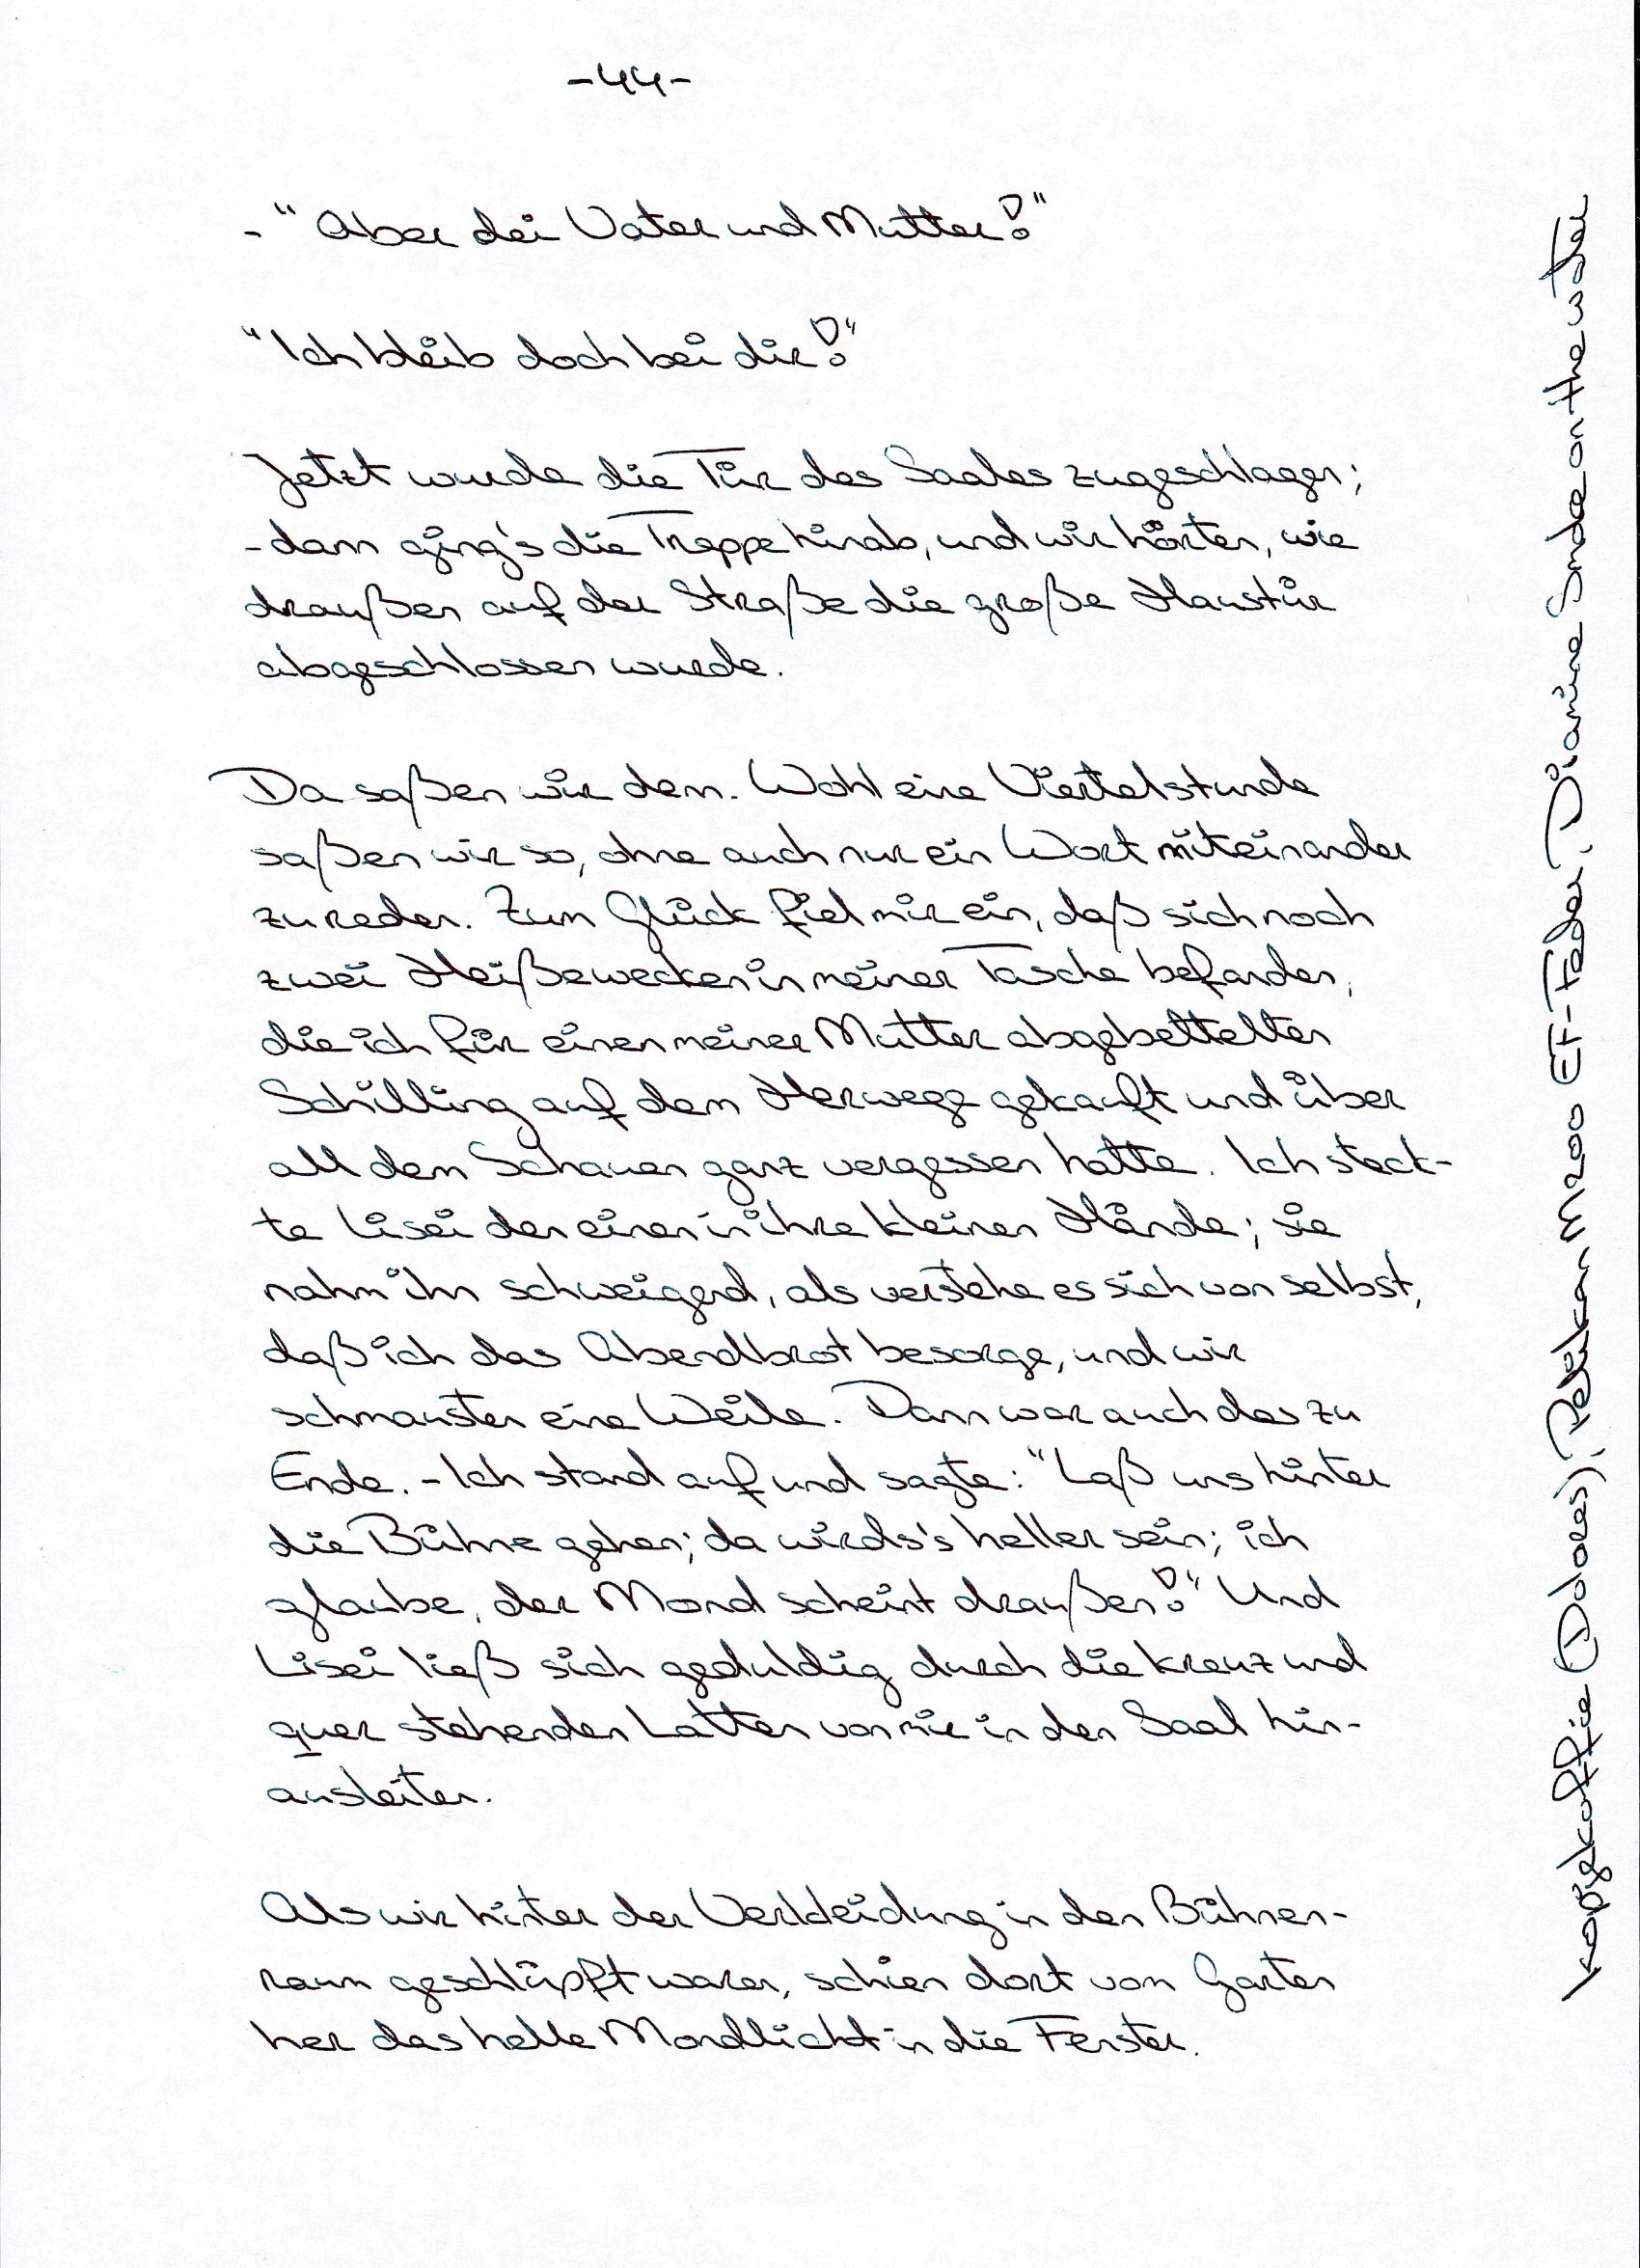 -44-
- "Aber dei Vater und Mutter!"
"Ich bleib doch bei dir!"
Jetzt wurde die Tür des Saales zugeschlagen;
- dann ging's die Treppe hinab, und wir hörten, wie
draußen auf der Straße die große Haustür
abgeschlossen wurde.
Da saßen wir denn. Wohl eine Viertelstunde
saßen wir so, ohne auch nur ein Wort miteinander
zu reden. Zum Glück fiel mir ein, daß sich noch
zwei Heißewecken in meiner Tasche befanden,
die ich für einen meiner Mutter abgebettelten
Schilling auf dem Herwege gekauft und über
all dem Schauen ganz vergessen hatte. Ich steck-
te Lisei den einen in ihre kleinen Hände; sie
nahm ihn schweigend, als verstehe es sich von selbst,
daß ich das Abendbrot besorge, und wir
schmausten eine Weile. Dann war auch das zu
Ende. - Ich stand auf und sagte: "Laß uns hinter
die Bühne gehen; da wirds's heller sein; ich
glaube, der Mond scheint draußen!" Und
Lisei ließ sich geduldig durch die kreuz und
quer stehenden Latten von mir in den Saal hin-
ausleiten.
Als wir hinter der Verkleidung in den Bühnen-
raum geschlüpft waren, schien dort vom Garten
her das helle Mondlicht in die Fenster.
(Dolores), Pelikan M200 EF-Feder, Diamine Smoke on the water